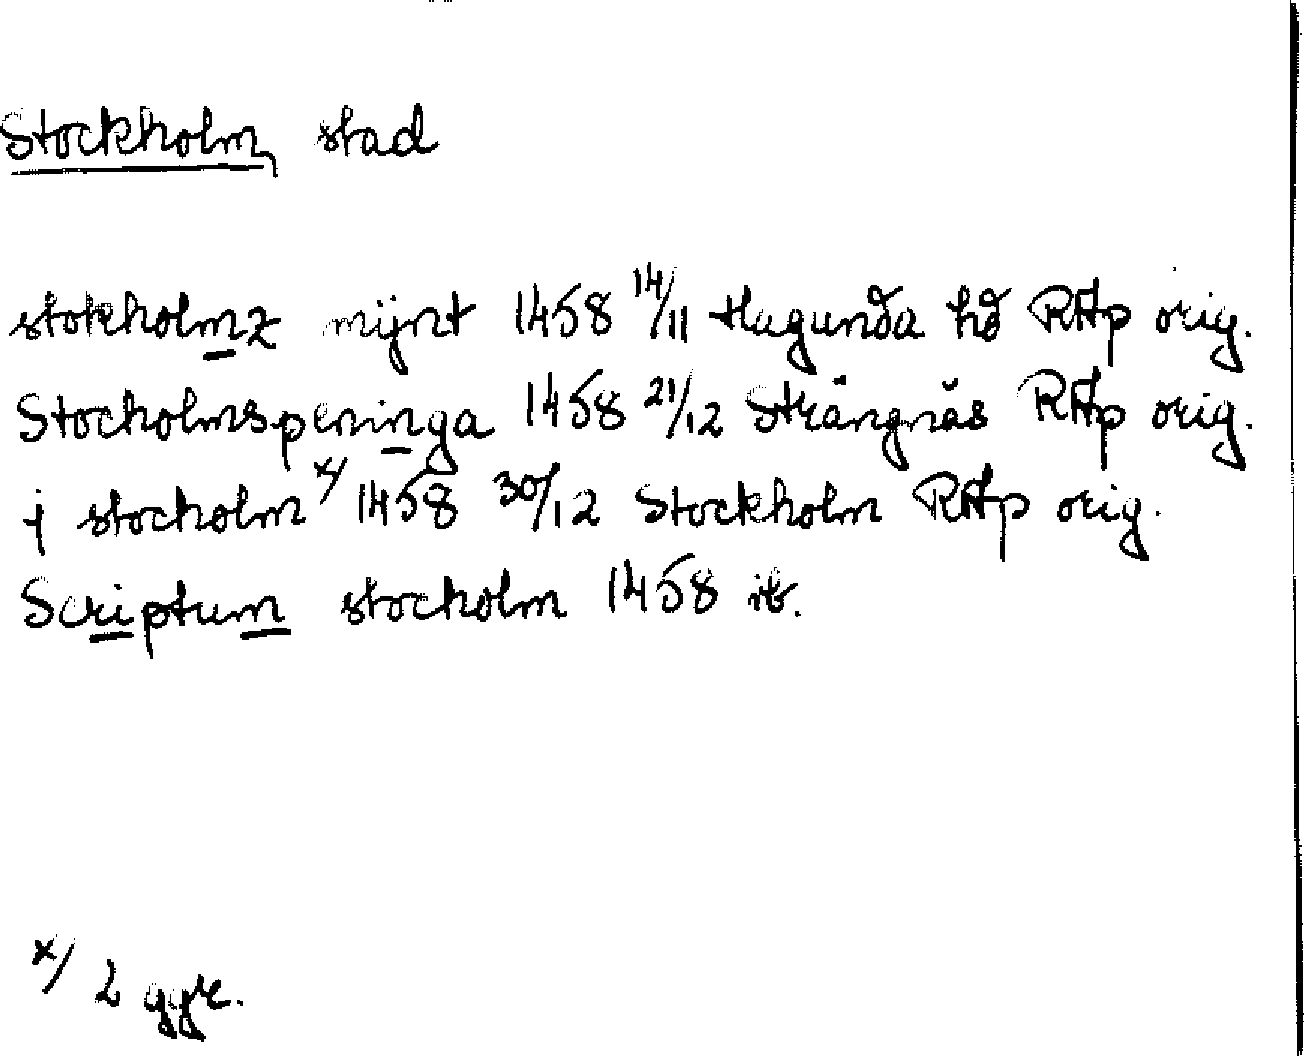 Stockholm, stad
stokholmz mÿnt 1458 14/11 Hagunda hd RAp orig.
Stocholmspeninga 1458 21/12 Strängnäs RAp orig.
j stocholm x/ 1458 30/12 Stockholm RAp orig.
Scriptum stocholm 1458 ib.
x/ 2 ggr.